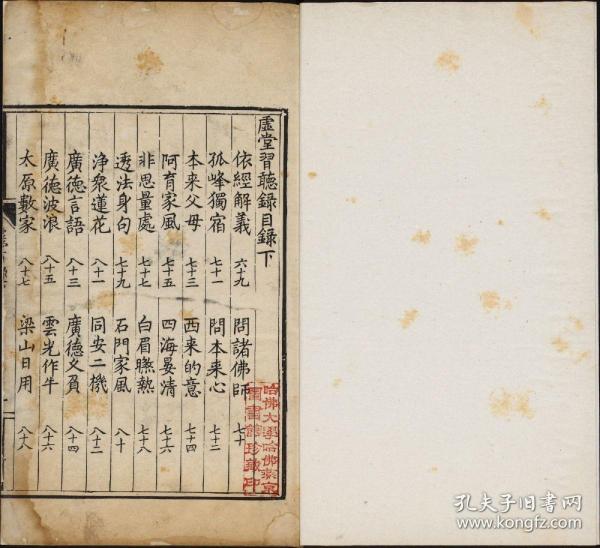 虛堂習聽録目録下
依經解義 六十九 問諸佛師 七十
孤峰獨宿 七十一 問本来心 七十二
本来父母 七十三 西来的意 七十四
阿育家風 七十五 四海晏清 七十六
非思量處 七十七 白眉𦡱熱 七十八
透法身句 七十九 石門家風 八十
浄衆蓮花 八十一 同安二機 八十二
廣徳言語 八十三 廣徳久負 八十四
廣徳波浪 八十五 雲光作牛 八十六
太原數家 八十七 梁山日用 八十八
哈佛大學哈佛燕京
圖書館珍藏印
孔夫子旧书网
www.kongfz.com